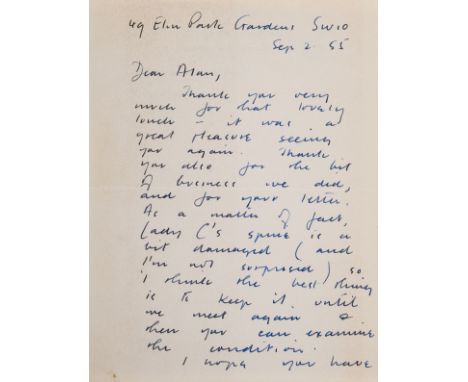 49 Elm Park Gardens SW10
Sep 2. 55
Dear Alan,
Thank you very
much for that lovely
lunch - it was a
great pleasure seeing
you again. Thank
you also for the bit
of business we did,
and for your letter.
As a matter of fact,
Lady C's spine is a
bit damaged (and
I'm not surprised) so
I think the best thing
is to keep it until
we meet again &
then you can examine
the condition.
I hope you have